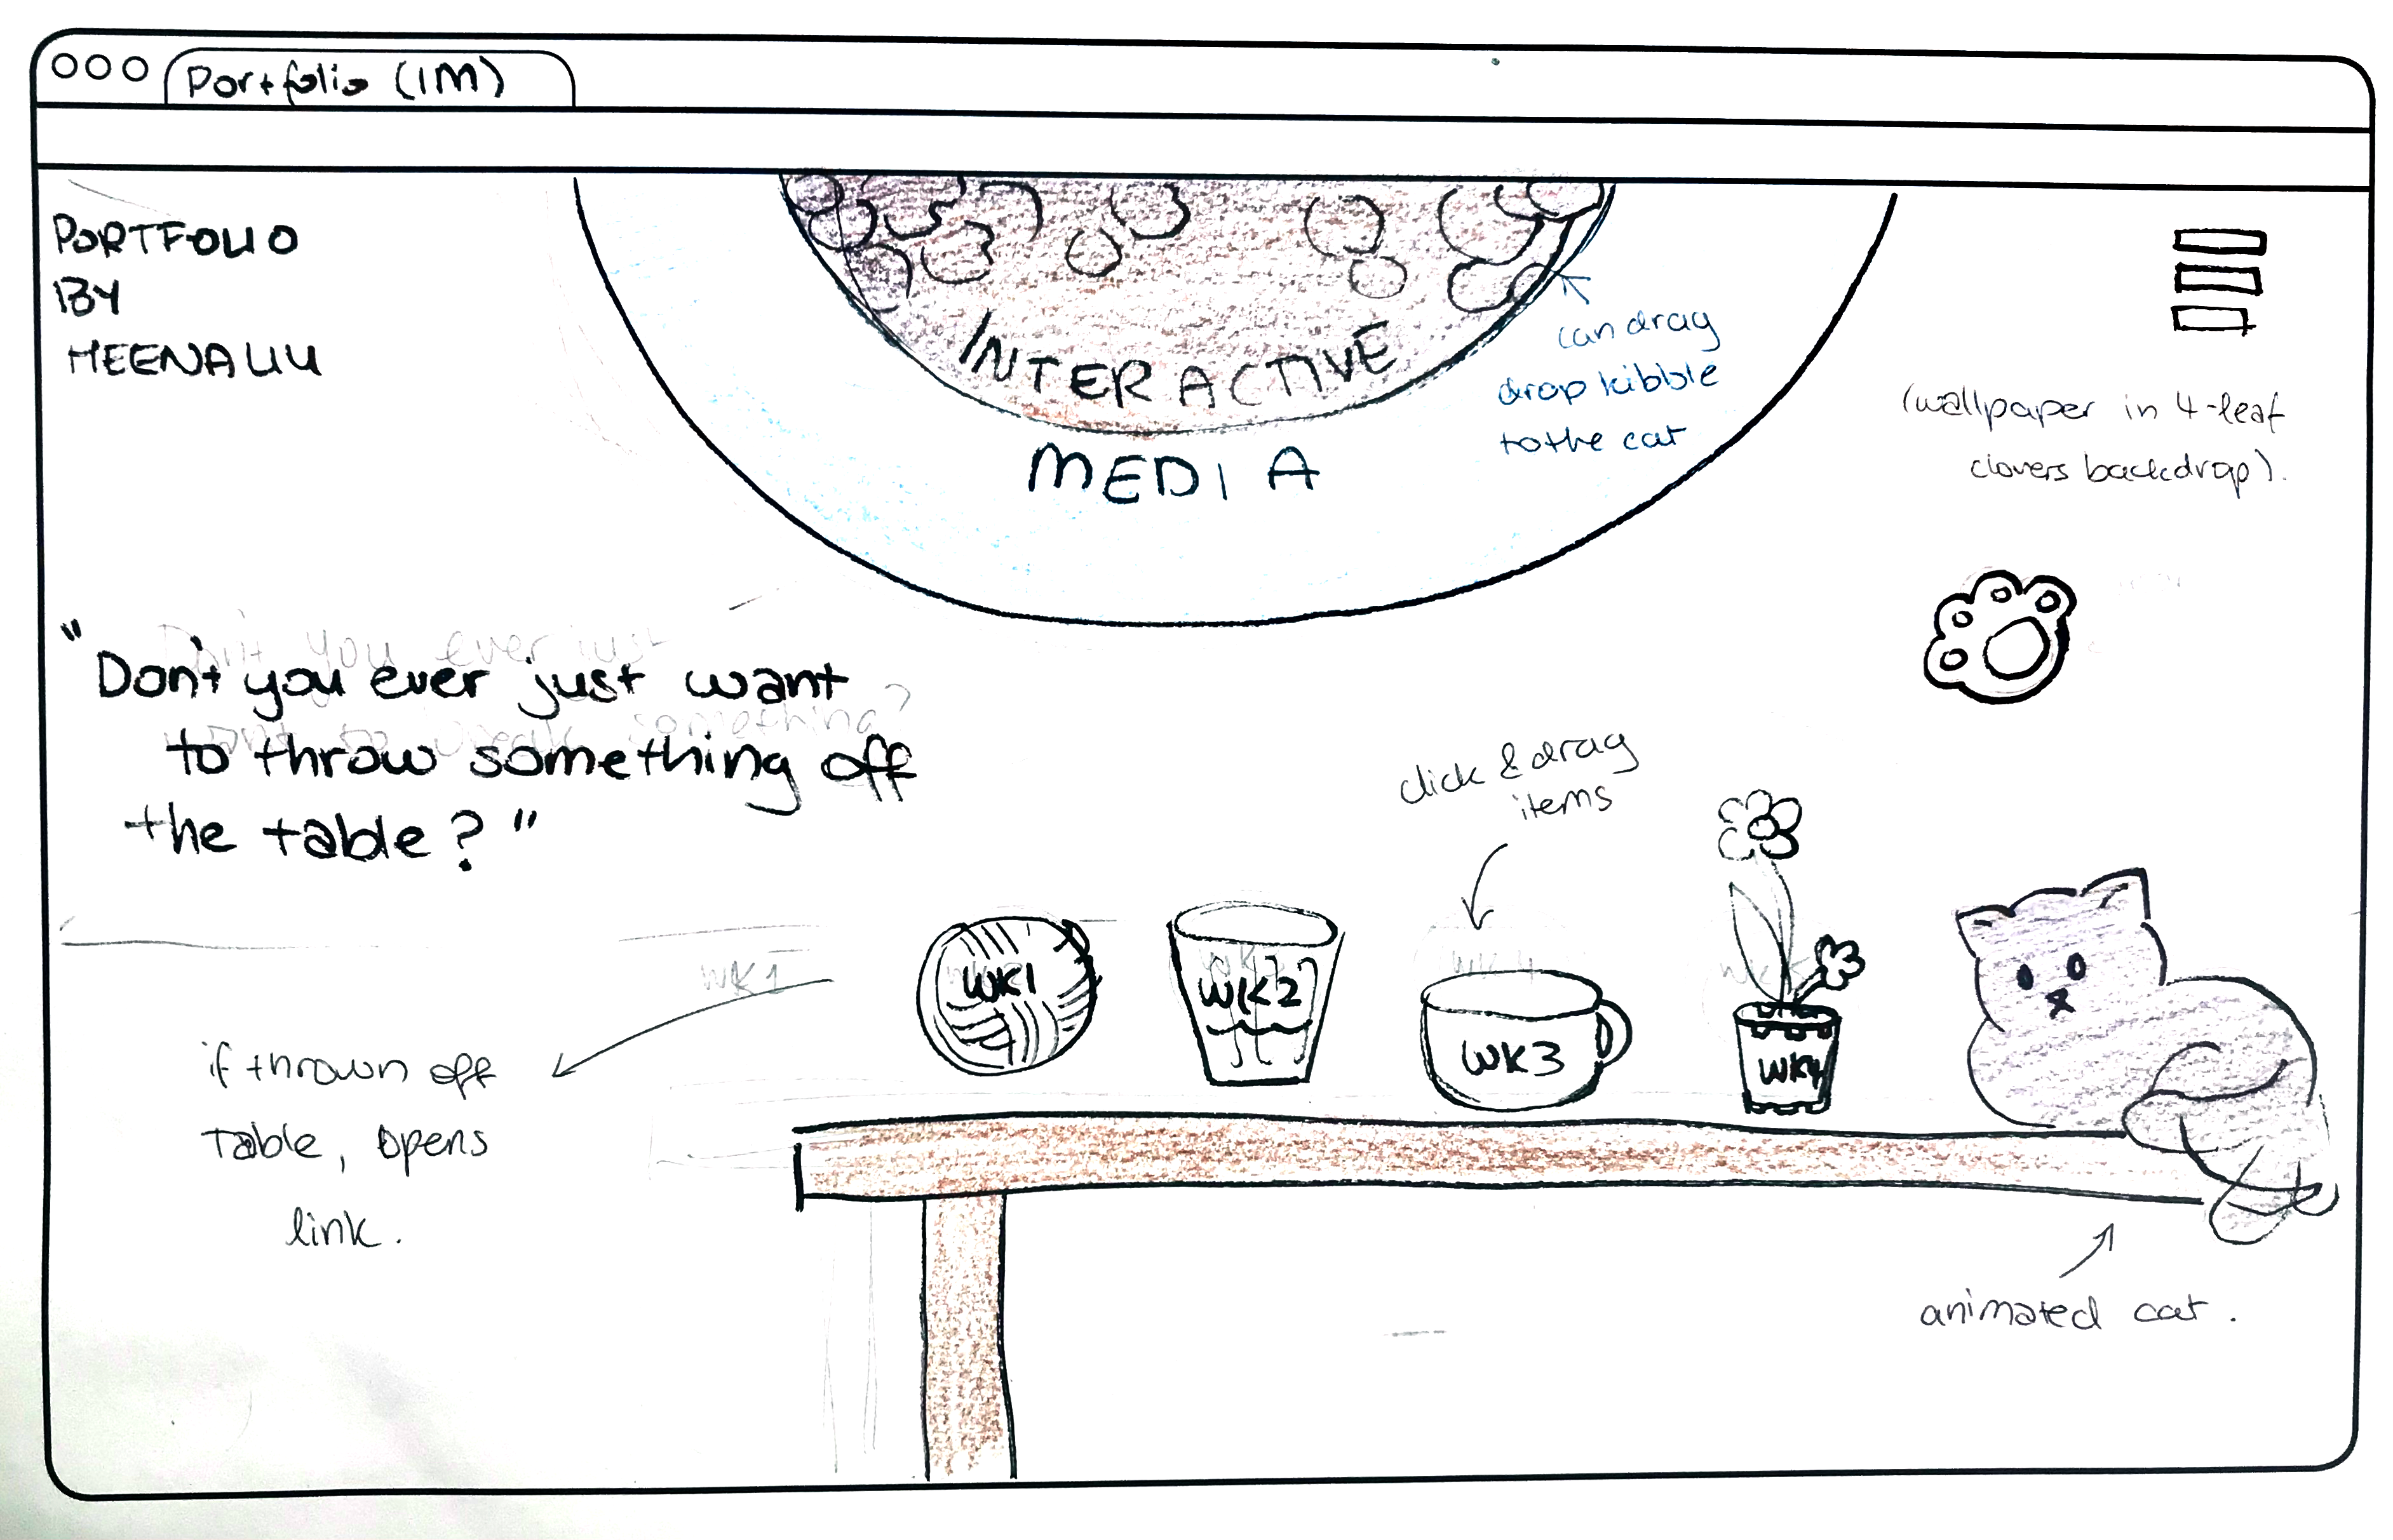 Portfolio (IM)
PORTFOLIO
BY
MEENALUU
INTERACTIVE
MEDIA
can drag
drop kibble
to the cat
(wallpaper in 4-leaf
clovers backdrop).
"Don't you ever just want
to throw something off
the table?"
click & drag
items
WK1
WK2
WK3
WK4
WK1
if thrown off
table, opens
link.
animated cat.